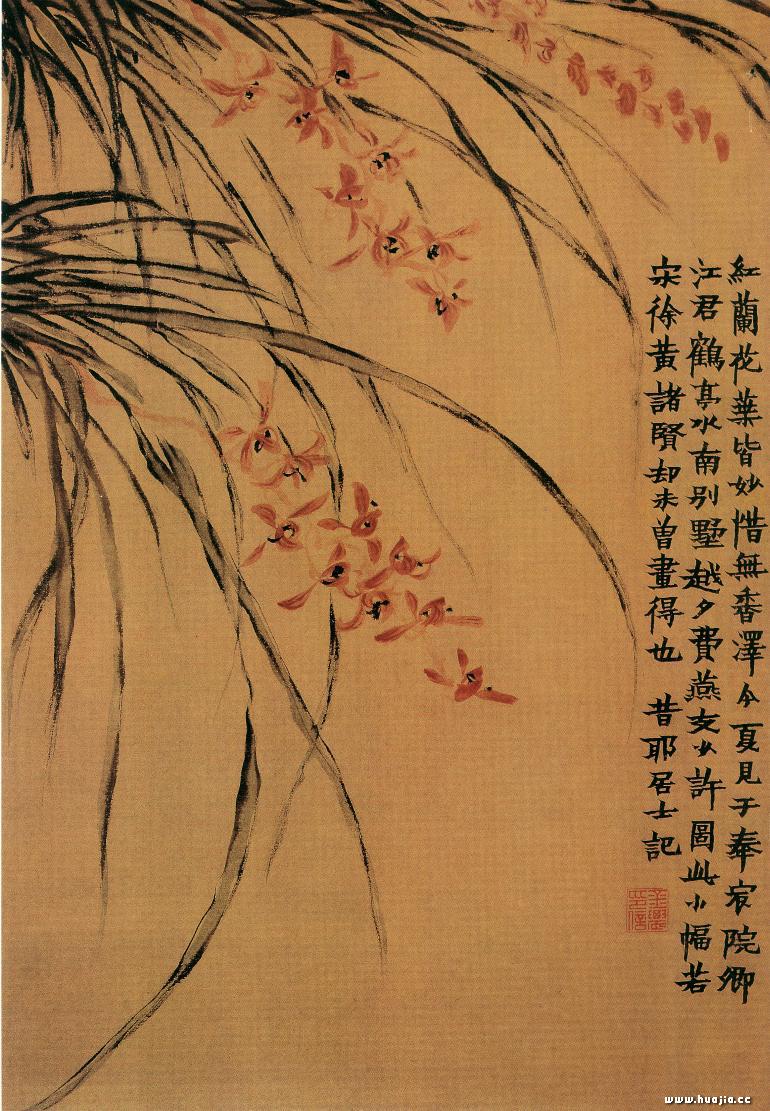 紅蘭花葉皆妙惜無香澤今夏見于奉宸院卿
江君鶴亭水南別墅越夕費燕支少許圖此小幅若
宋徐黃諸賢却未曾畫得也 昔耶居士記
金農印信
www.huajia.cc